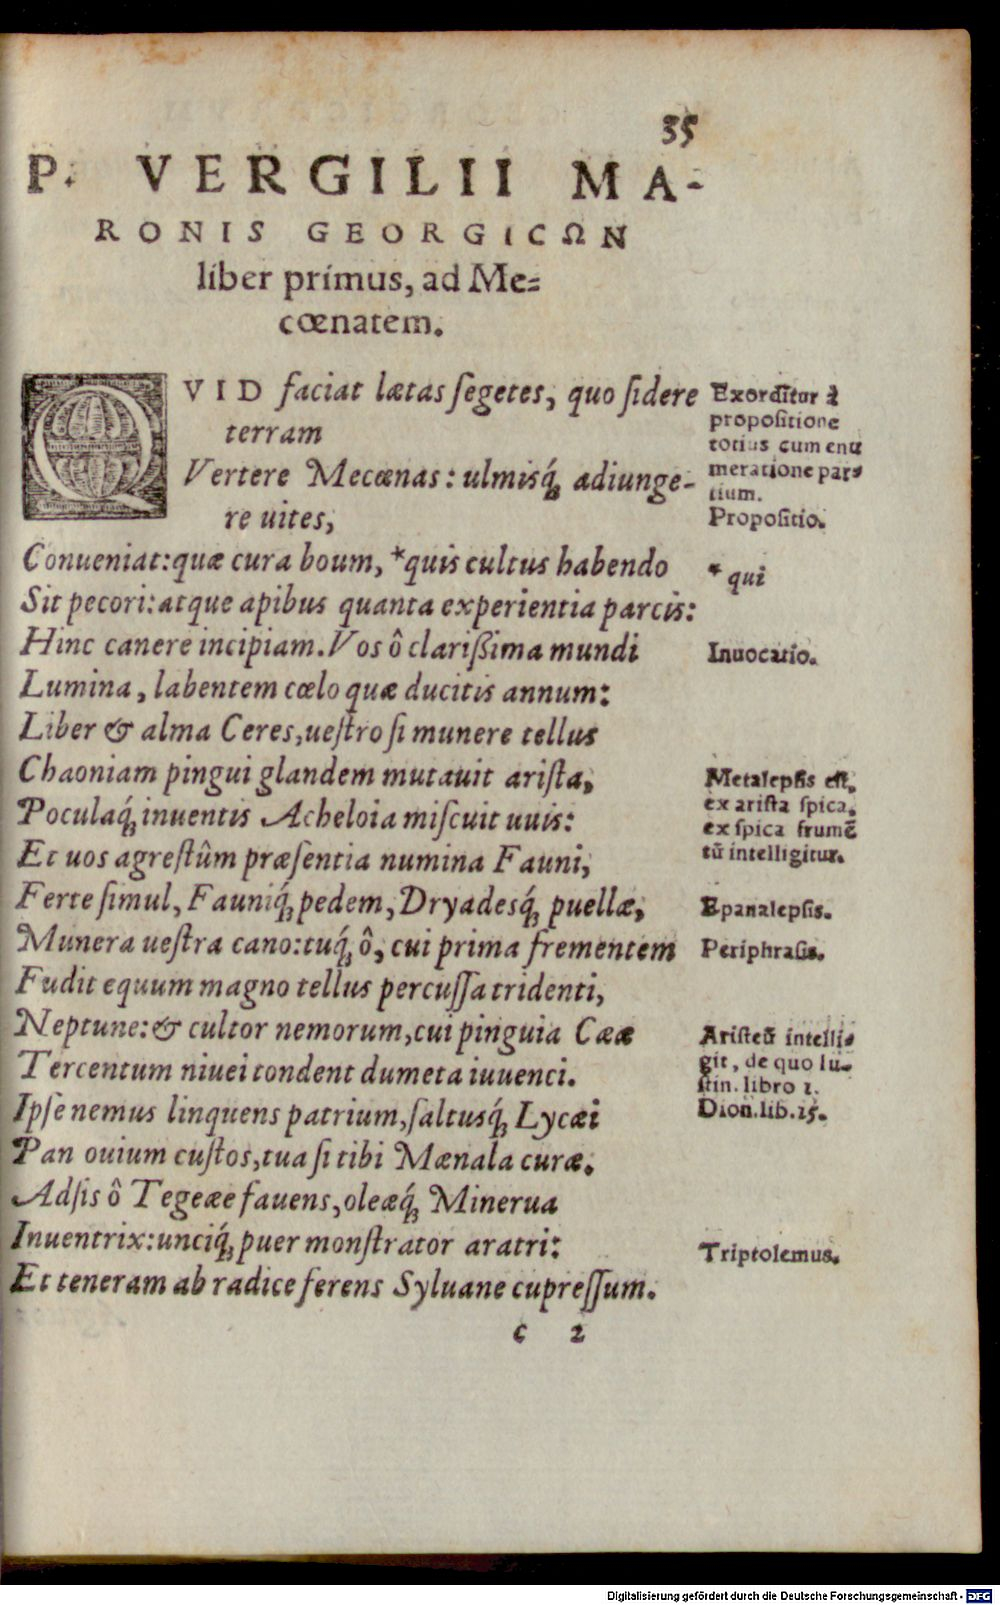 35
P. VERGILII MA-
RONIS GEORGICΩN
liber primus, ad Me=
cœnatem.
QVID faciat lætas ſegetes, quo ſidere
terram
Vertere Mecœnas: ulmisq́; adiunge-
re uites,
Conueniat: quæ cura boum, *quis cultus habendo
Sit pecori: atque apibus quanta experientia parcis:
Hinc canere incipiam. Vos ô clarißima mundi
Lumina, labentem cœlo quæ ducitis annum:
Liber & alma Ceres, ueſtro ſi munere tellus
Chaoniam pingui glandem mutauit ariſta,
Poculaq́; inuentis Acheloia miſcuit uuis:
Et uos agreſtûm præſentia numina Fauni,
Ferte ſimul, Fauniq́; pedem, Dryadesq́; puellæ,
Munera ueſtra cano: tuq́; ô, cui prima frementem
Fudit equum magno tellus percuſſa tridenti,
Neptune: & cultor nemorum, cui pinguia Cææ
Tercentum niuei tondent dumeta iuuenci.
Ipſe nemus linquens patrium, ſaltusq́; Lycæi
Pan ouium cuſtos, tua ſi tibi Mænala curæ.
Adſis ô Tegeæe fauens, oleæq́; Minerua
Inuentrix: unciq́; puer monſtrator aratri:
Et teneram ab radice ferens Syluane cupreſſum.
c 2
Exordĩtur à
propoſitione
totius cum enu
meratione par=
tium.
Propoſitio.
* qui
Inuocatio.
Metalepſis eſt,
ex ariſta ſpica,
ex ſpica frumẽ
tũ intelligitur.
Epanalepſis.
Periphraſis.
Ariſteũ intelli=
git, de quo Iu-
ſtin. libro 1.
Dion. lib. 15.
Triptolemus.
Digitalisierung gefördert durch die Deutsche Forschungsgemeinschaft - DFG